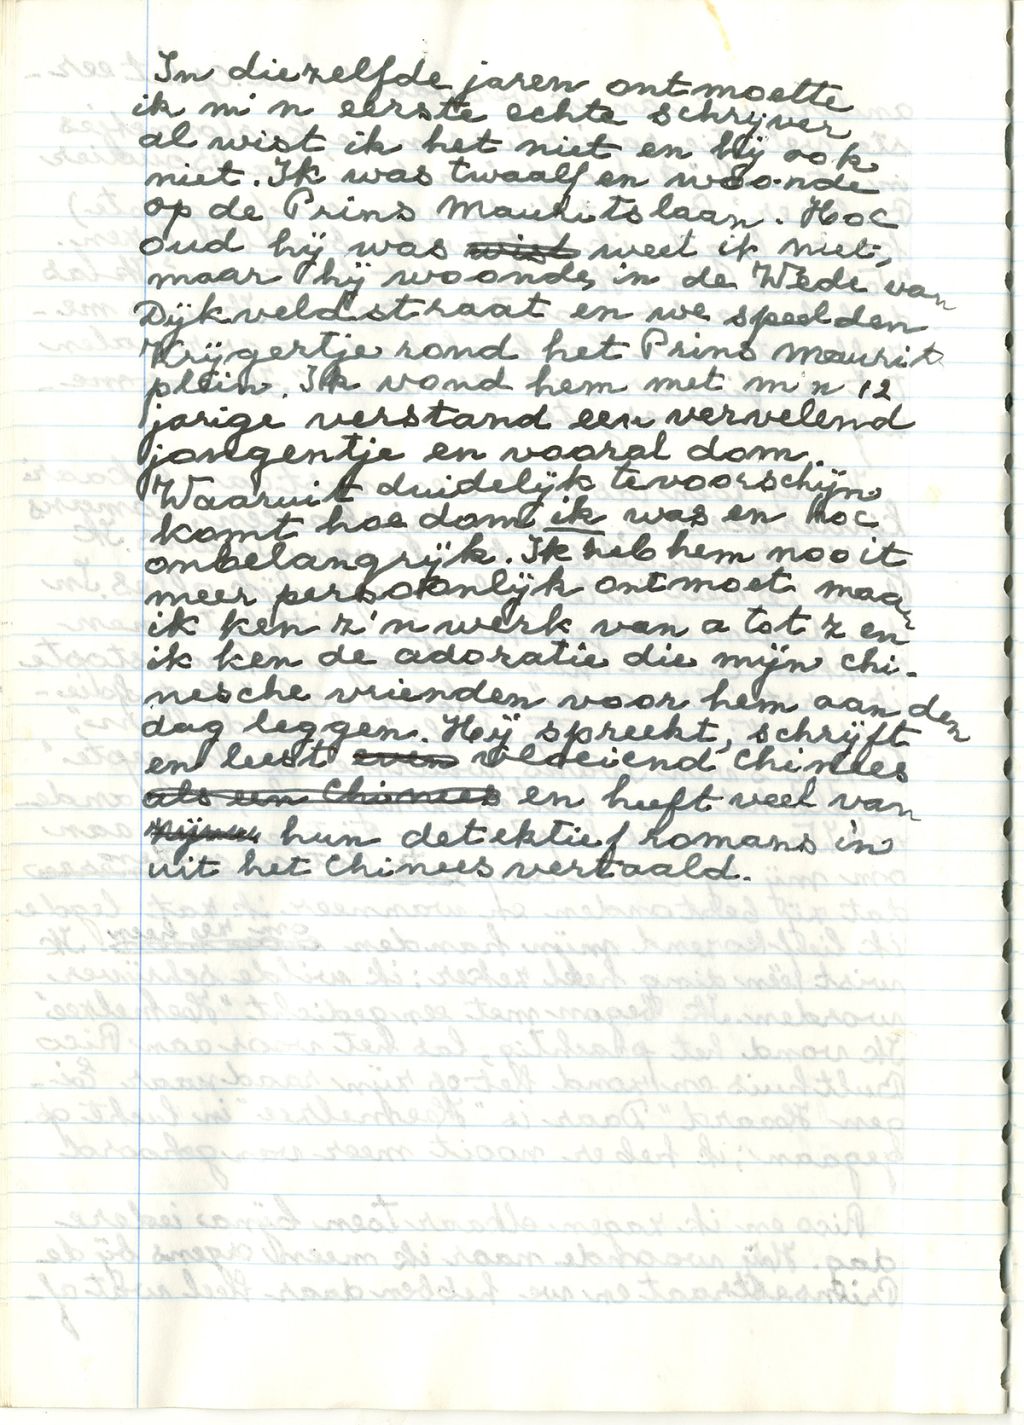 In diezelfde jaren ontmoette
ik m'n eerste echte schrijver
al wist ik het niet en hij ook
niet. Ik was twaalf en woonde
op de Prins Mauritslaan. Hoe
oud hij was wist weet ik niet,
maar hij woonde in de Wede van
Dijkveldstraat en we speelden
Krijgertje rond het Prins Maurits
plein. Ik vond hem met m'n 12
jarige verstand een vervelend
jongentje en vooral dom.
Waaruit duidelijk tevoorschijn
komt hoe dom ik was en hoe
onbelangrijk. Ik heb hem nooit
meer persoonlijk ontmoet maar
ik ken z'n werk van a tot z en
ik ken de adoratie die mijn chi-
nesche vrienden voor hem aan den
dag leggen. Hij spreekt, schrijft
en leest even vloeiend chinees
als een Chinees en heeft veel van
hun detektief romans in
uit het Chinees vertaald.